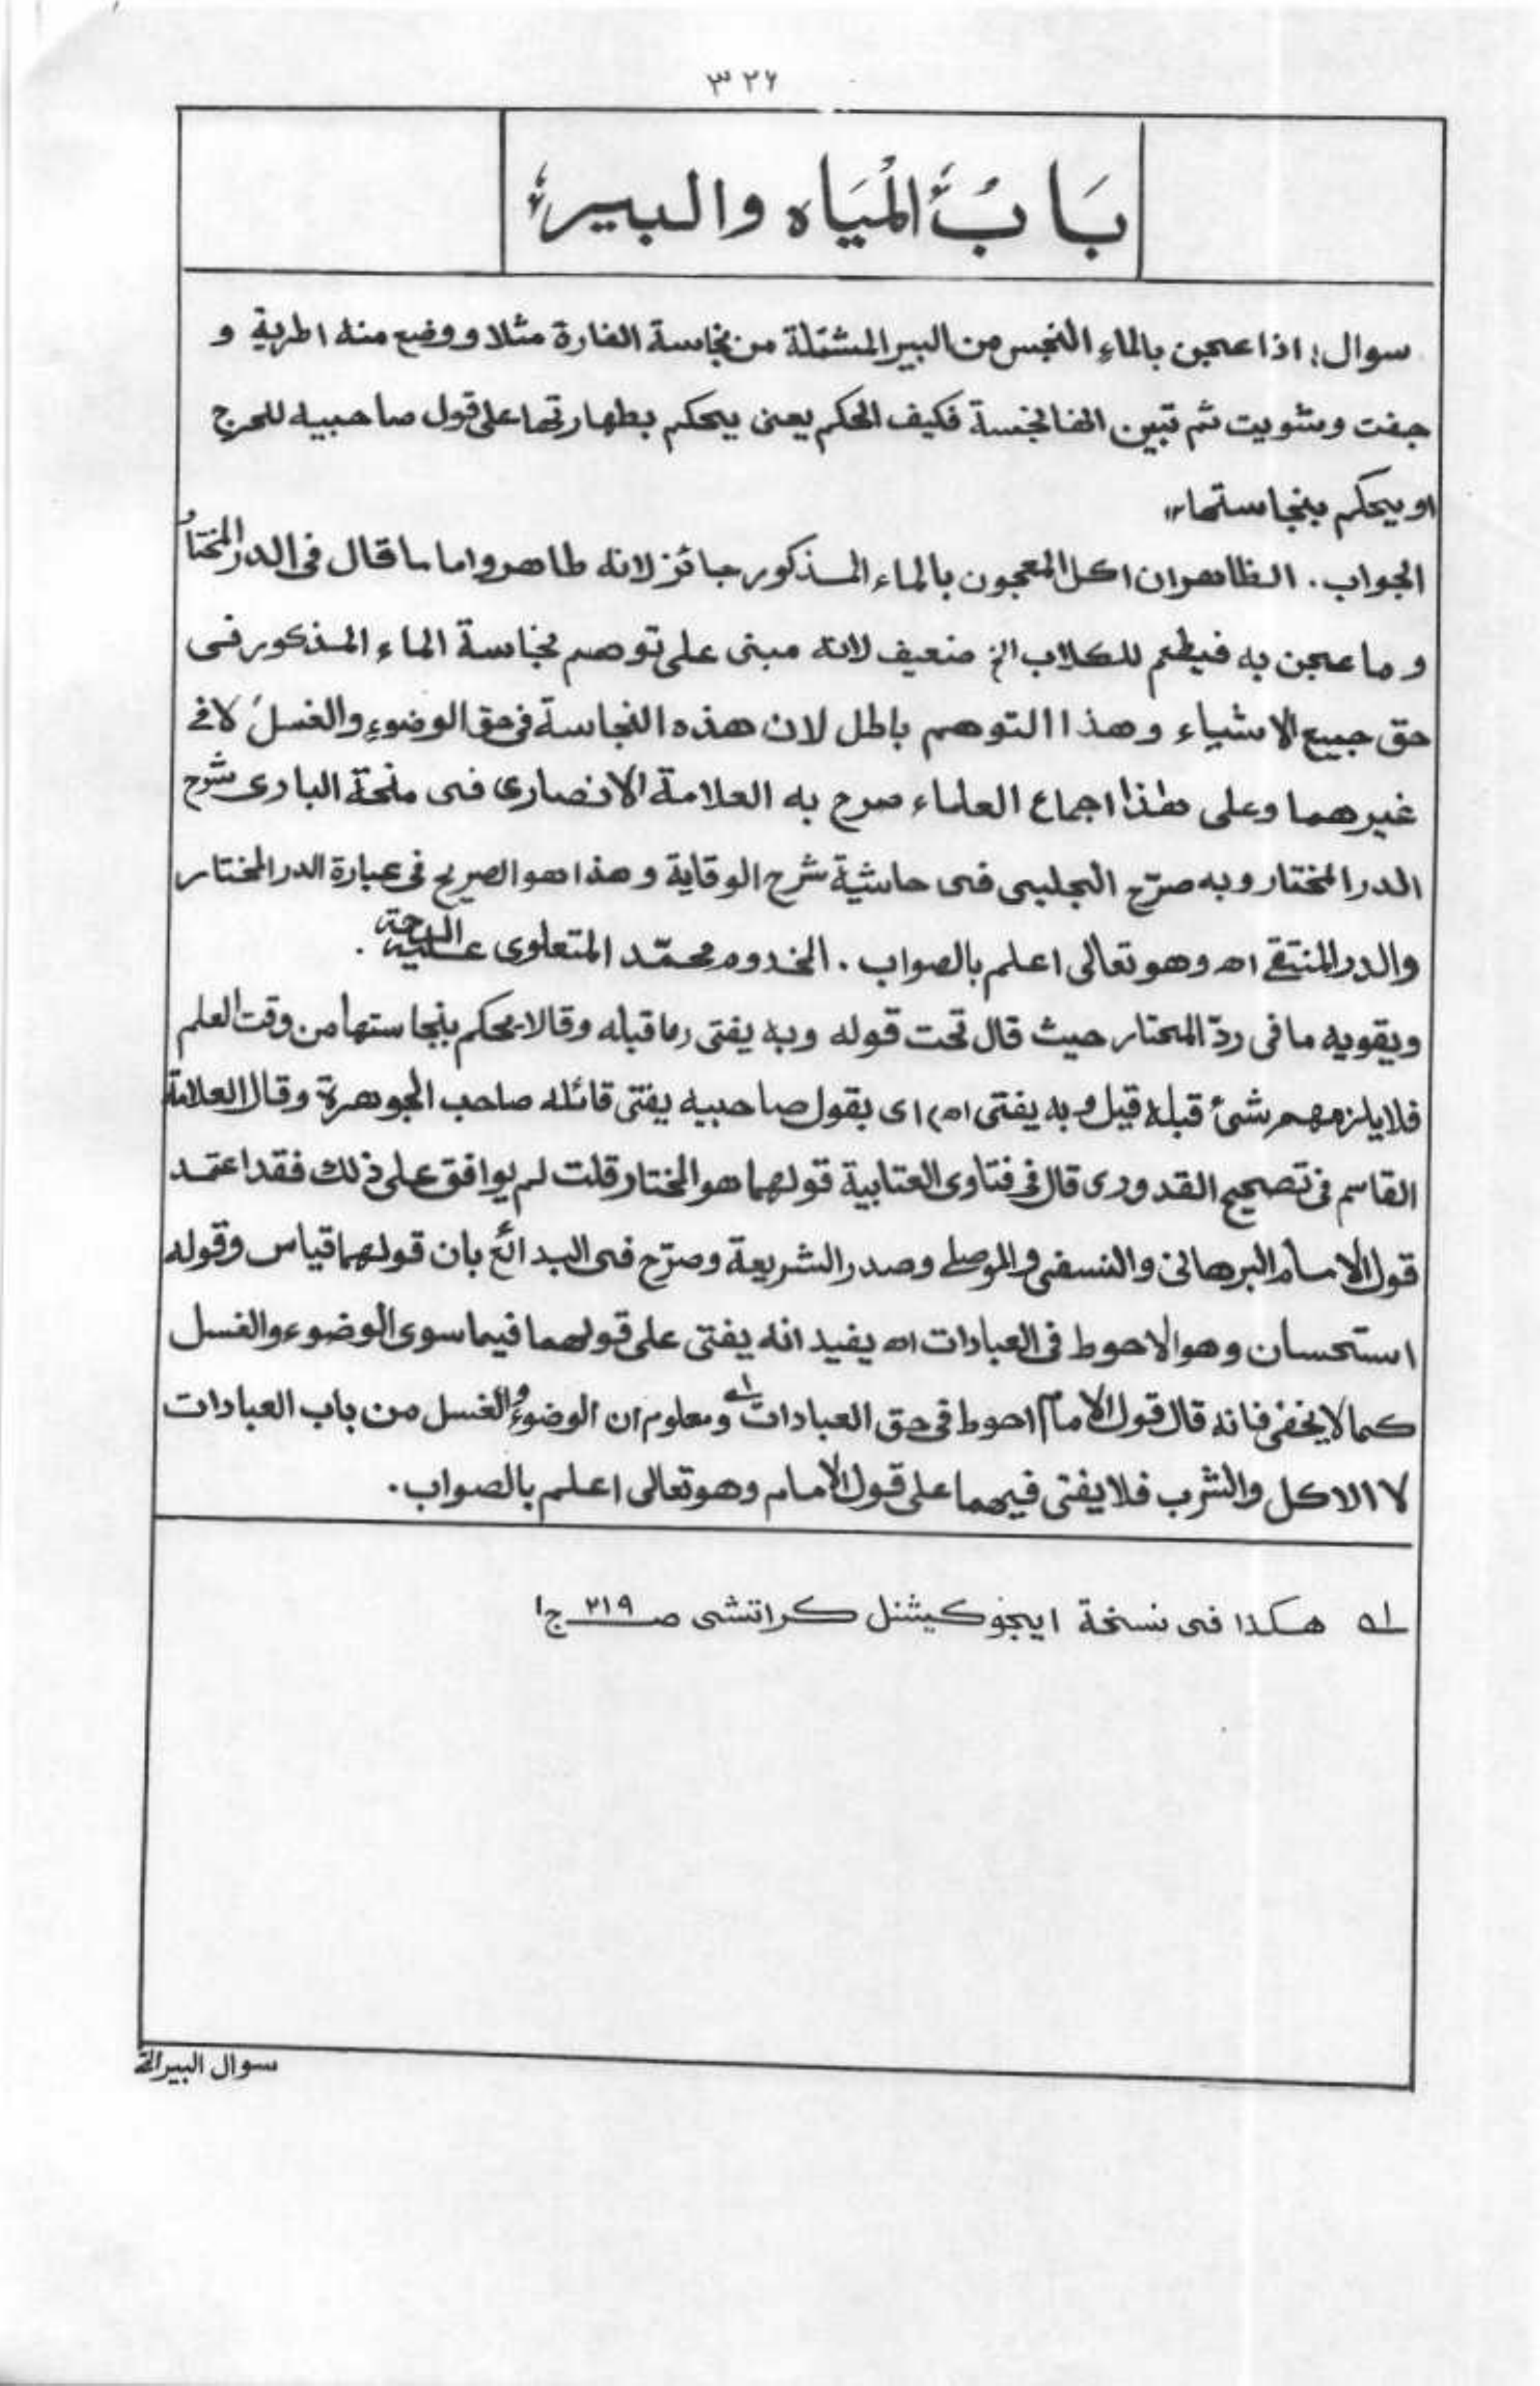 ۳۲۶
بَابُ الْمَيَاه والبير
سوال: اذا عجن بالماء النجس من البير المشتملة من نجاسة الفارة مثلا ووضع منه اطرية و
جفت وشويت ثم تبين انها نجسة فكيف الحكم يعنى يحكم بطهارتها على قول صاحبيه للحرج
او يحكم بنجاستها
الجواب. الظاهر ان اكل المعجون بالماء المذكور جائز لانه طاهر واما ما قال فى الدر المختار
وما عجن به فيطعم للكلاب الخ ضعيف لانه مبنى على توهم نجاسة الماء المذكور فى
حق جميع الاشياء وهذا التوهم باطل لان هذه النجاسة فى حق الوضوء والغسل لا فى
غيرهما وعلى هٰذا اجماع العلماء صرح به العلامة الانصارى فى منحة البارى شرح
الدر المختار وبه صرّح الجلبى فى حاشية شرح الوقاية وهذا هو الصريح فى عبارة الدر المختار
والدر المنتقى اه وهو تعالى اعلم بالصواب. المخدوم محمّد المتعلوى عليه الرحمة.
ويقويه ما فى ردّ المحتار حيث قال تحت قوله وبه يفتى رما قبله وقالا يحكم بنجاستها من وقت العلم
فلا يلزمهم شئ قبله قيل وبه يفتى اه) اى بقول صاحبيه يفتى قائله صاحب الجوهرة وقال العلامة
القاسم فى تصحيح القدورى قال فى فتاوى العتابية قولهما هو المختار قلت لم يوافق على ذلك فقد اعتمد
قول الامام البرهانى والنسفى والموصلى وصدر الشريعة وصرّح فى البدائع بان قولهما قياس وقوله
استحسان وهو الاحوط فى العبادات اه يفيد انه يفتى على قولهما فيما سوى الوضوء والغسل
كما لا يخفى فانه قال قول الامام احوط فى حق العبادات له ومعلوم ان الوضوء والغسل من باب العبادات
لا الاكل والشرب فلا يفتى فيهما على قول الامام وهو تعالى اعلم بالصواب.
له هكذا فى نسخة ايجوكيشنل كراتشى صـ ۲۱۹ ج۱
سوال البير الخ